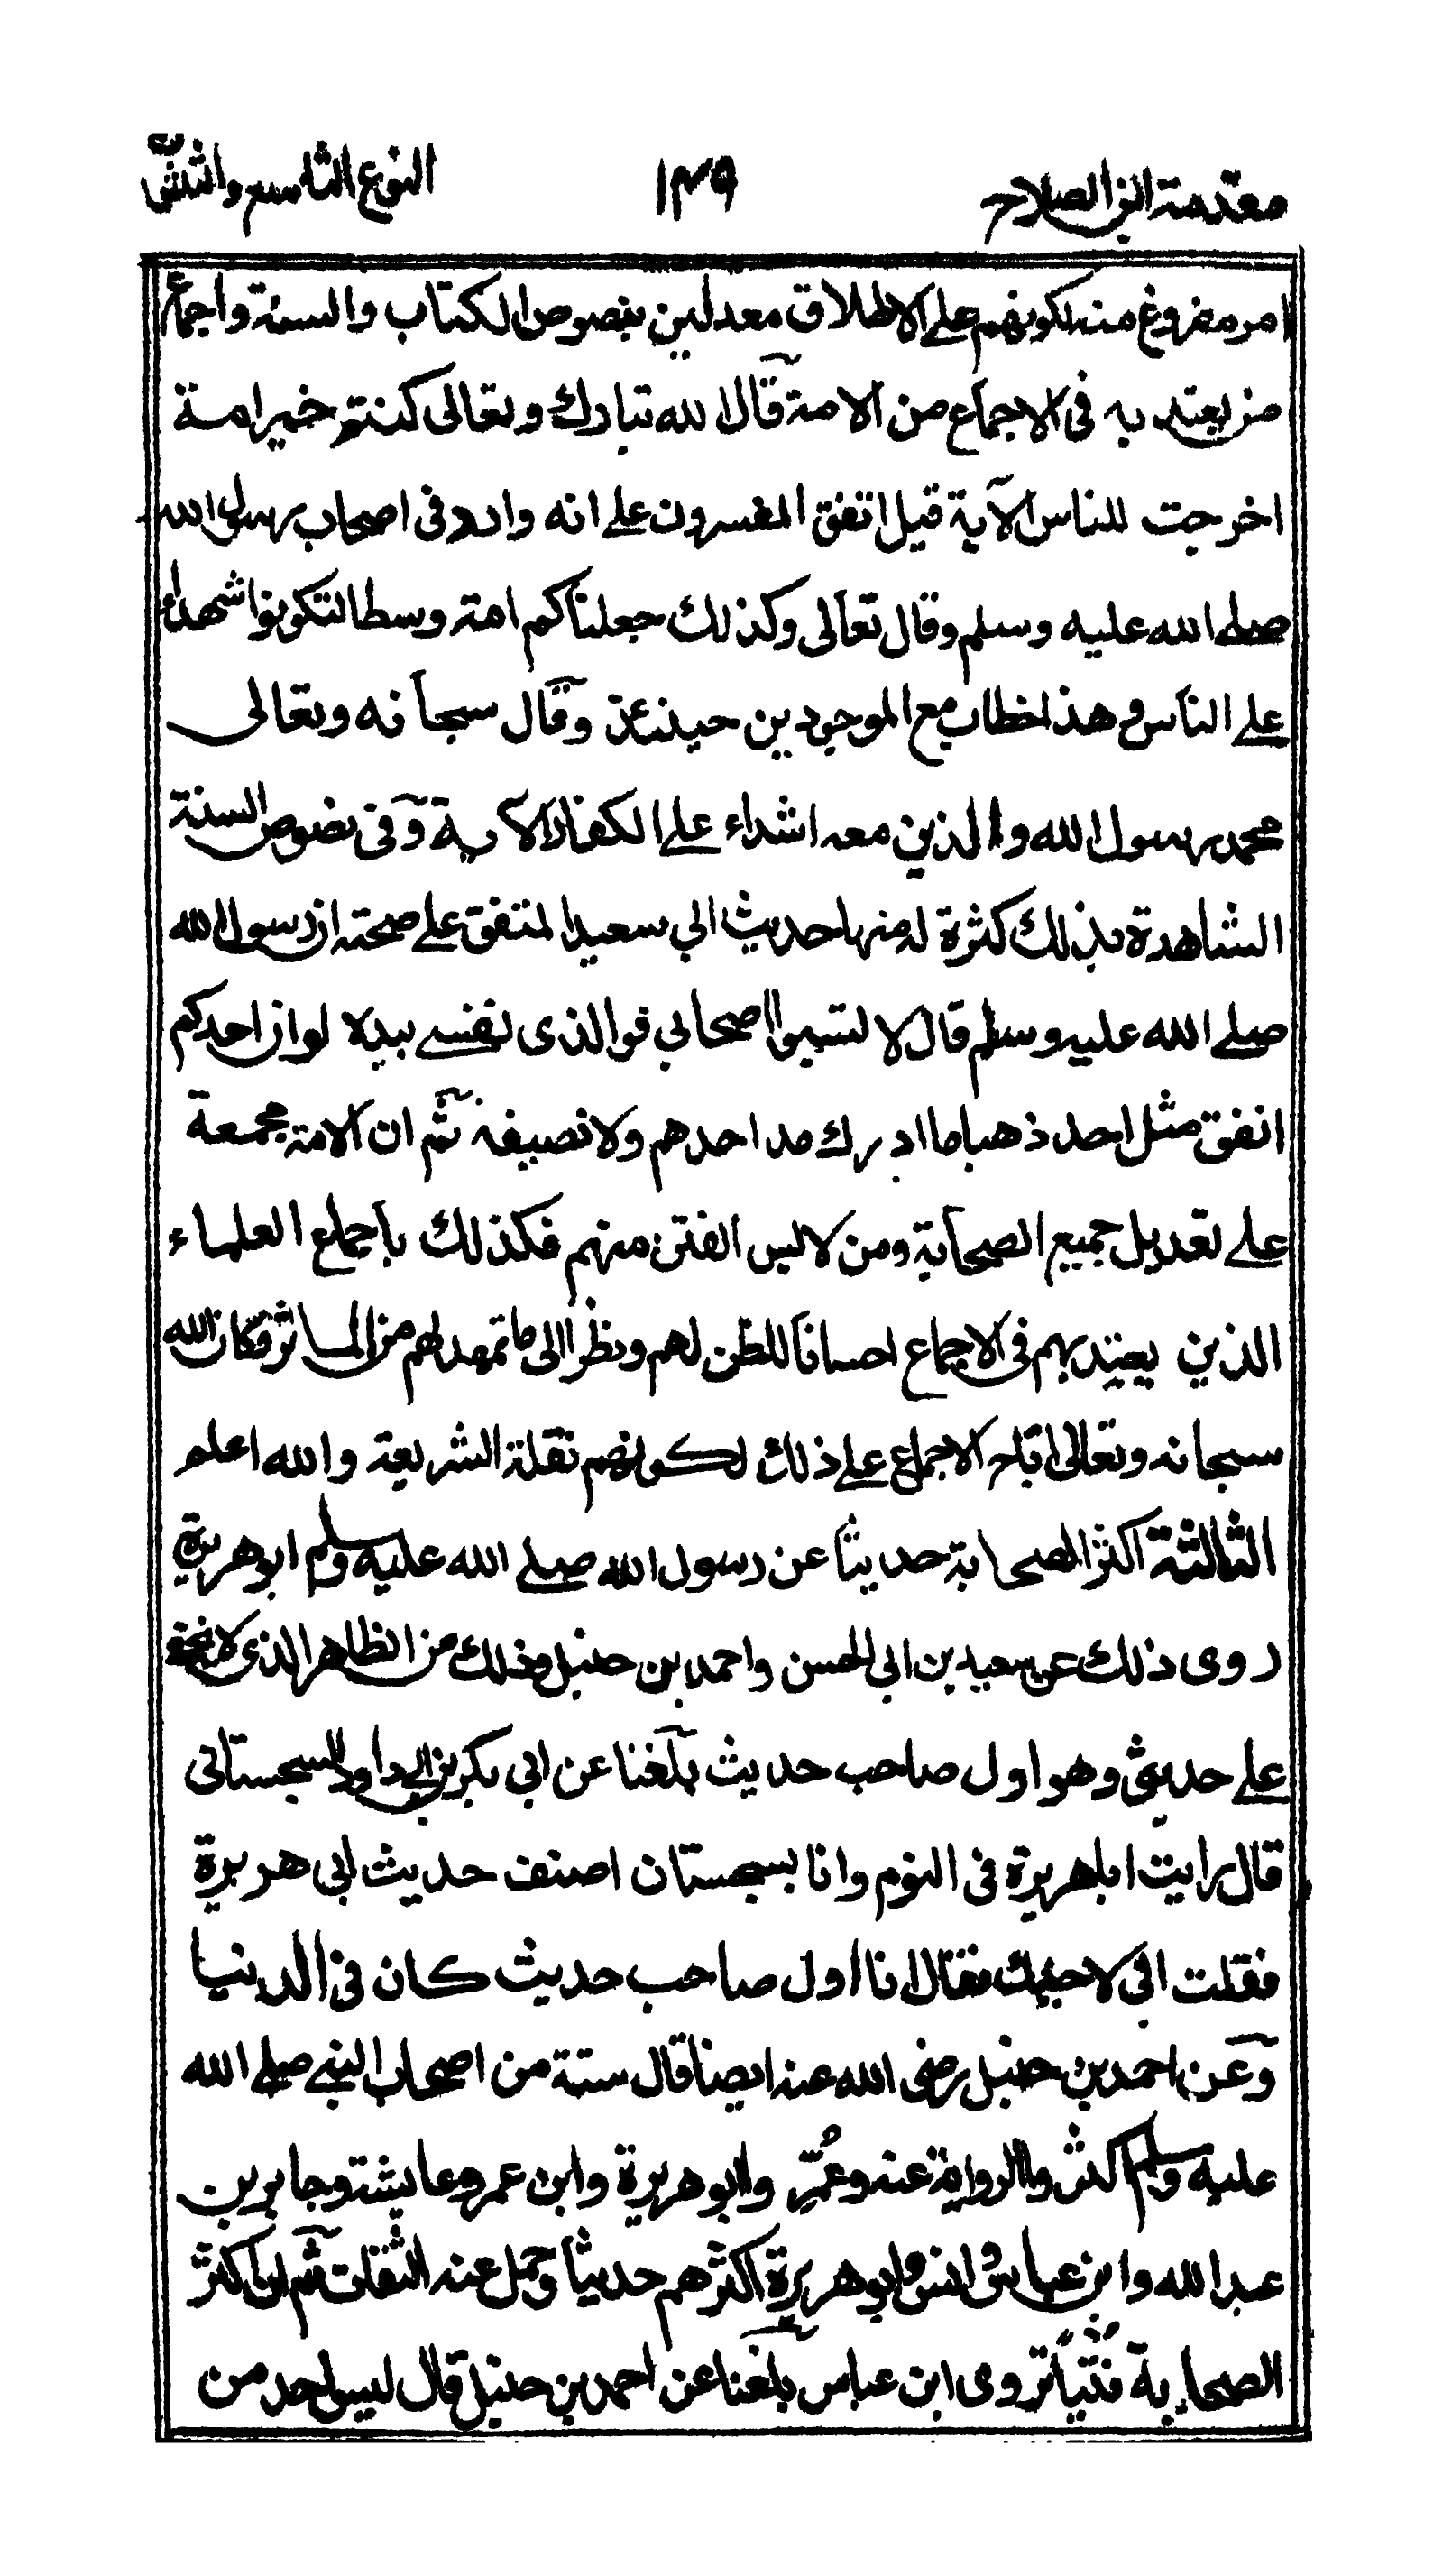 مقدمة ابن الصلاح ١٣٩ النوع التاسع والثلثون
امر مفروغ منه لكونهم على الاطلاق معدلين بنصوص الكتاب والسنة واجماع
من يعتد به فى الاجماع من الامة قال الله تبارك وتعالى كنتم خير امة
اخرجت للناس الآية قيل اتفق المفسرون على انه وارد فى اصحاب رسول الله
صلى الله عليه وسلم وقال تعالى وكذلك جعلناكم امة وسطا لتكونوا شهداء
على الناس وهذا خطاب مع الموجودين حينئذ وقال سبحانه وتعالى
محمد رسول الله والذين معه اشداء على الكفار الآية وفى نصوص السنة
الشاهدة بذلك كثرة له منها حديث ابي سعيد المتفق على صحته ان رسول الله
صلى الله عليه وسلم قال لا تسبوا اصحابي فوالذى نفسى بيده لو ان احدكم
انفق مثل احد ذهبا ما ادرك مد احدهم ولا نصيفه ثم ان الامة مجمعة
على تعديل جميع الصحابة ومن لابس الفتن منهم فكذلك باجماع العلماء
الذين يعتد بهم فى الاجماع احسانا للظن لهم ونظرا الى ما تمهد لهم من المآثر فكان الله
سبحانه وتعالى اتاح الاجماع على ذلك لكونهم نقلة الشريعة والله اعلم
الثالثة اكثر الصحابة حديثا عن رسول الله صلى الله عليه وسلم ابو هريرة
روى ذلك عن سعيد بن ابي الحسن واحمد بن حنبل وذلك من الظاهر الذى لا يخفى
على حديثى وهو اول صاحب حديث بلغنا عن ابي بكر بن ابي داود السجستانى
قال رايت اباهريرة فى النوم وانا بسجستان اصنف حديث ابى هريرة
فقلت انى لاحبك فقال انا اول صاحب حديث كان فى الدنيا
وعن احمد بن حنبل رضى الله عنه ايضا قال ستة من اصحاب النبى صلى الله
عليه وسلم اكثروا الرواية عنه وعمروا ابو هريرة وابن عمر وعايشة وجابر بن
عبد الله وابن عباس وانس وابو هريرة اكثرهم حديثا وحمل عنه الثقات ثم ان اكثر
الصحابة فتيا تروى ابن عباس بلغنا عن احمد بن حنبل قال ليس احد من